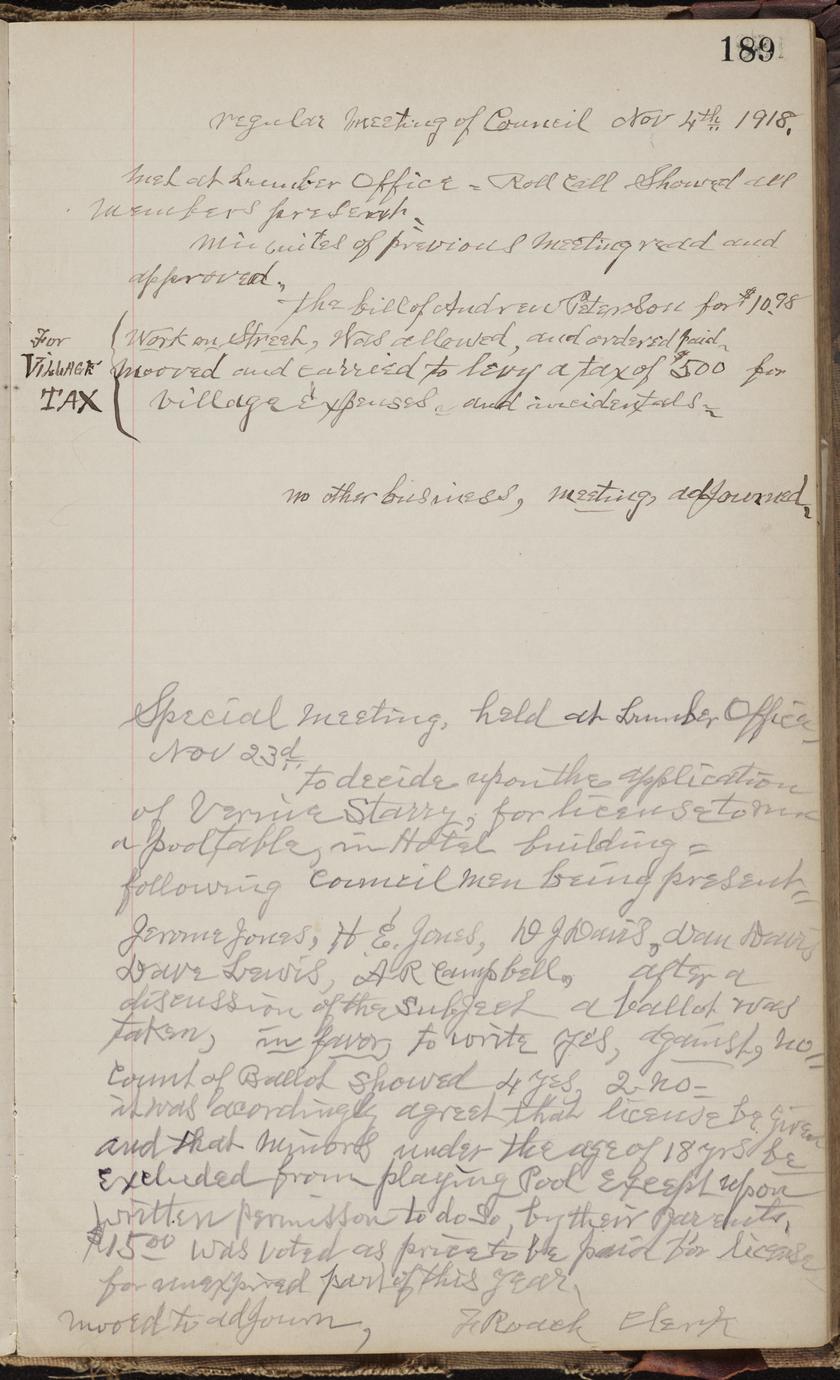 189
regular Meeting of Council Nov 4th 1918.
Met at Lumber Office = Roll Call Showed all
members present.
Minuites of previous Meeting read and
approved.
The bill of Andrew Peterson for $10.98
Work on Street, Was allowed, and ordered paid
For VILLAGE TAX
mooved and carried to levy a tax of $500 for
village Expenses and incidentals =
no other business, meeting, adjourned.
Special Meeting, held at Lumber Office,
Nov 23d
to decide upon the application
of Vernie Starry, for license to run
a pooltable, in Hotel building =
following Council Men being present =
Jerome Jones, H E. Jones, D J Davis, Dan Davis
Dave Lewis, A R Campbell, after a
discussion of the Subject a ballot was
taken, in favor, to write yes, against, no =
Count of Ballot Showed 4 yes, 2 no =
it was acordingly agreet that license be given
and that Minors under the age of 18 yrs be
Excluded from playing Pool Except upon
written permisson to do so, by their Parents,
$15.00 was voted as price to be paid for license
for unexpired part of this year,
mooed to adjourn, F Roach Clerk